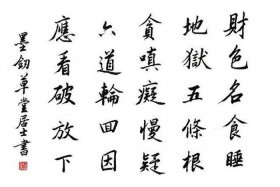 財色名食睡
地獄五條根
貪嗔癡慢疑
六道輪回因
應看破放下
墨劍草堂居士書